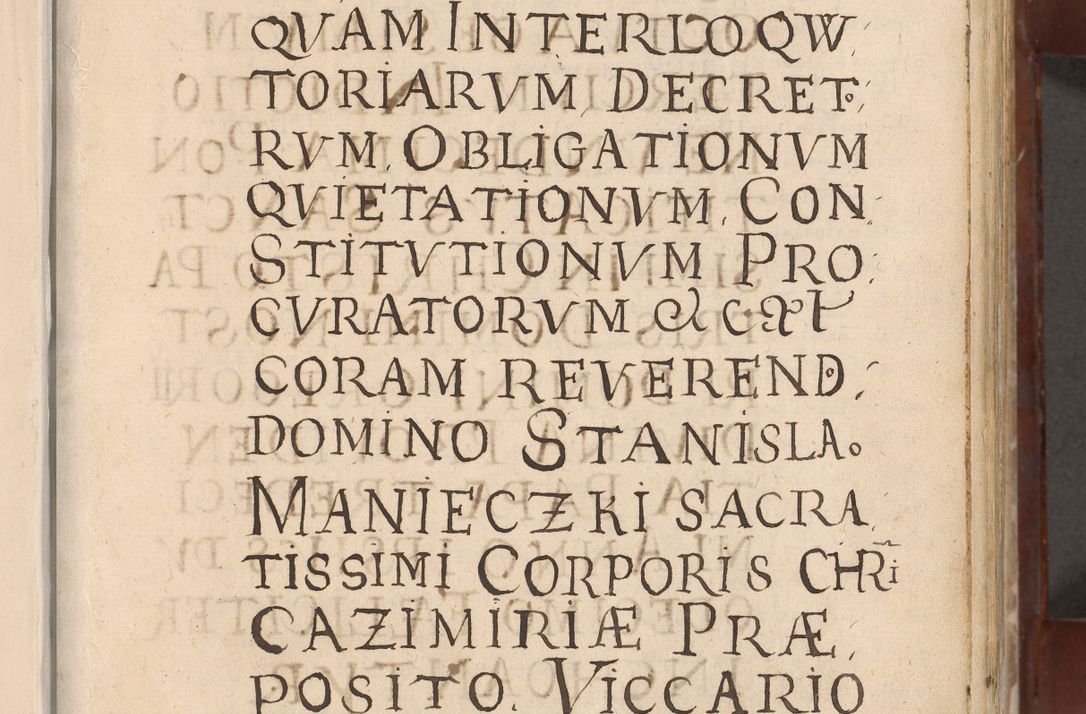 QVAM INTERLOQW
TORIARVM DECRETO
RVM, OBLIGATIONVM
QVIETATIONVM, CON
STITVTIONVM PRO
CVRATORVM & C
CORAM REVERENDO
DOMINO STANISLAo
MANIECZKI SACRA
TISSIMI CORPORIS CHRI
CAZIMIRIÆ PRÆ
POSITO, VICCARIO